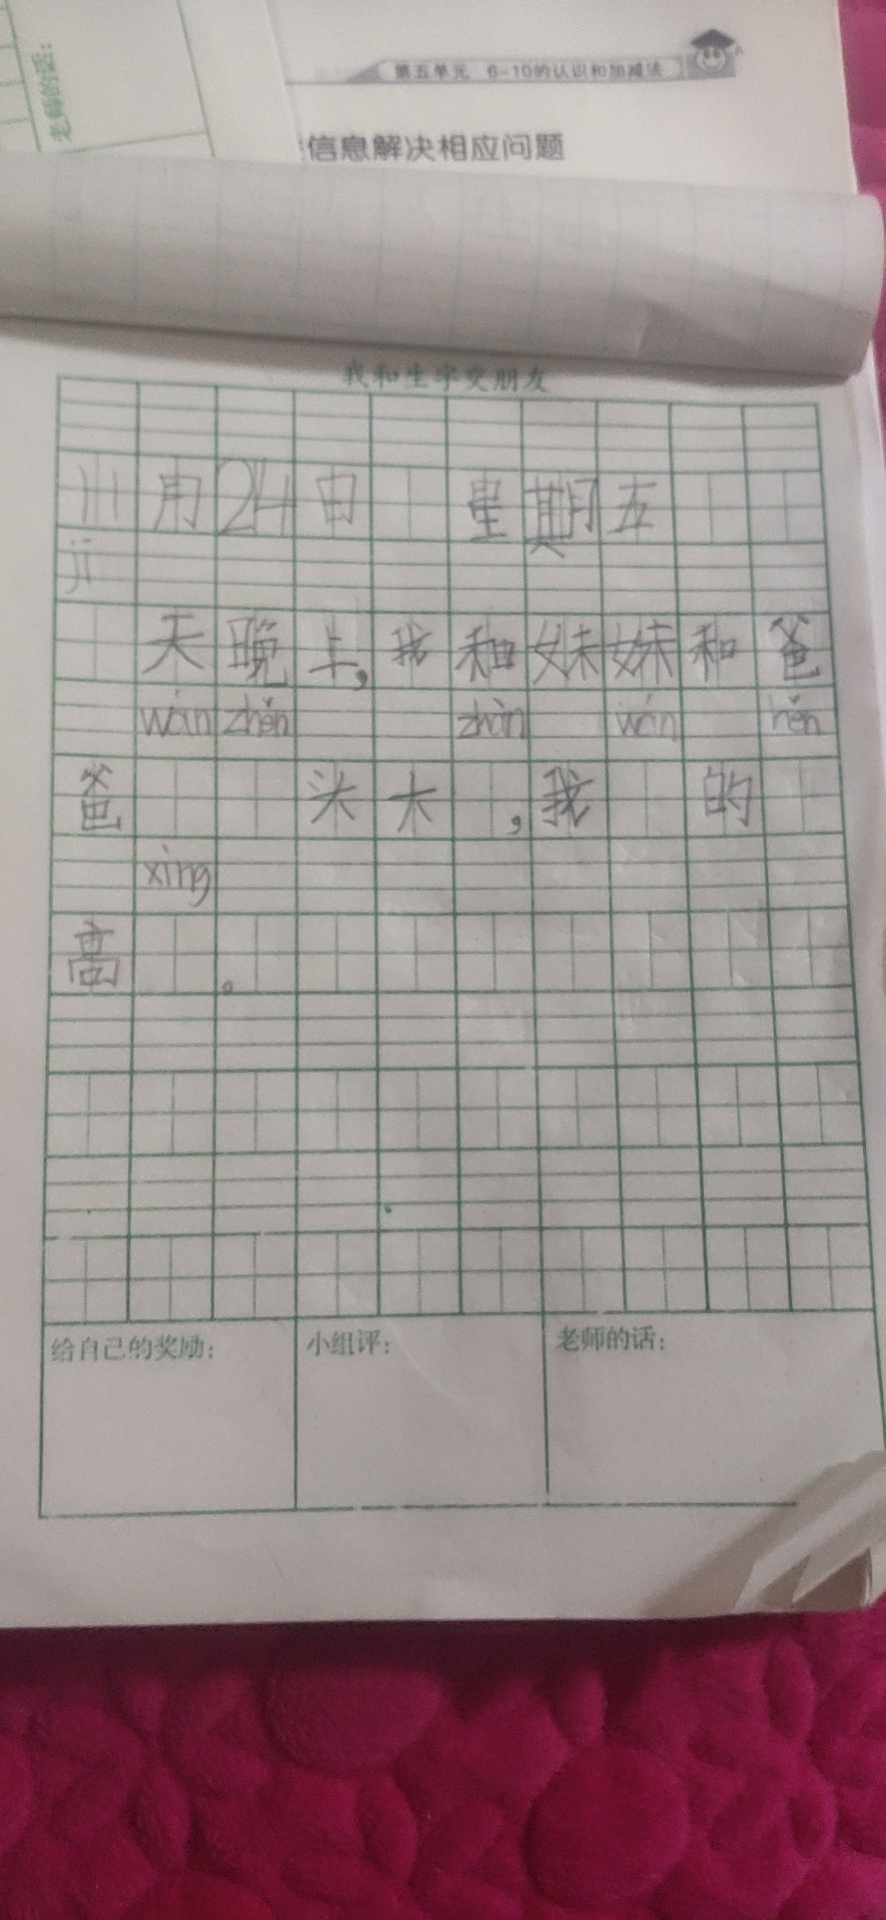 老师的话:
第五单元 6-10的认识和加减法
信息解决相应问题
我和生字交朋友
11月24日 星期五
jī
天晚上,我和妹妹和爸
wán zhěn zhàn wán hěn
爸 头大 ,我 的
xìng
高 。
给自己的奖励:
小组评:
老师的话: